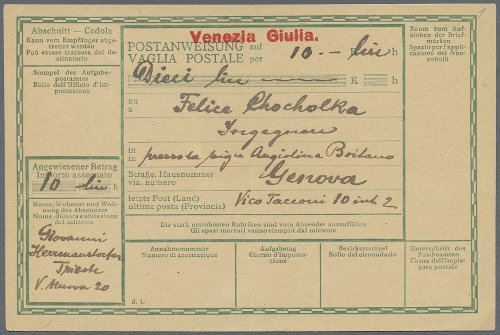 Venezia Giulia.
Abschnitt - Cedola
Kann vom Empfänger abgetrennt werden
Può essere staccata dal destinatario
Stempel des Aufgabepostamtes
Bollo dell'Ufficio d'impostazione
Angewiesener Betrag
Importo assegnato
10 lire h
Name, Wohnort und Wohnung des Absenders
Nome, dimora e abitazione del mittente
Giovanni
Herrmanstorfer
Trieste
V. Nuova 20
POSTANWEISUNG auf
VAGLIA POSTALE per
10.- lire h
Dieci lire K h
an
a
Felice Chocholka
Ingegnere
in
in
presso la sigra Angiolina Boitano
Straße, Hausnummer
via, numero
Genova
letzte Post (Land)
ultima posta (Provincia)
Vico Tacconi 10 int 2
Die stark umrahmten Rubriken sind vom Absender auszufüllen
Gli spazi marcati vanno riempiti dal mittente
Annahmenummer
Numero di accettazione
Aufgabetag
Giorno d'impostazione
Bezirksstempel
Bollo del circondario
d. i.
Raum zum Aufkleben der Briefmarken
Spazio per l'applicazione dei francobolli
Unterschrift des Postbeamten
Firma dell'impiegato postale